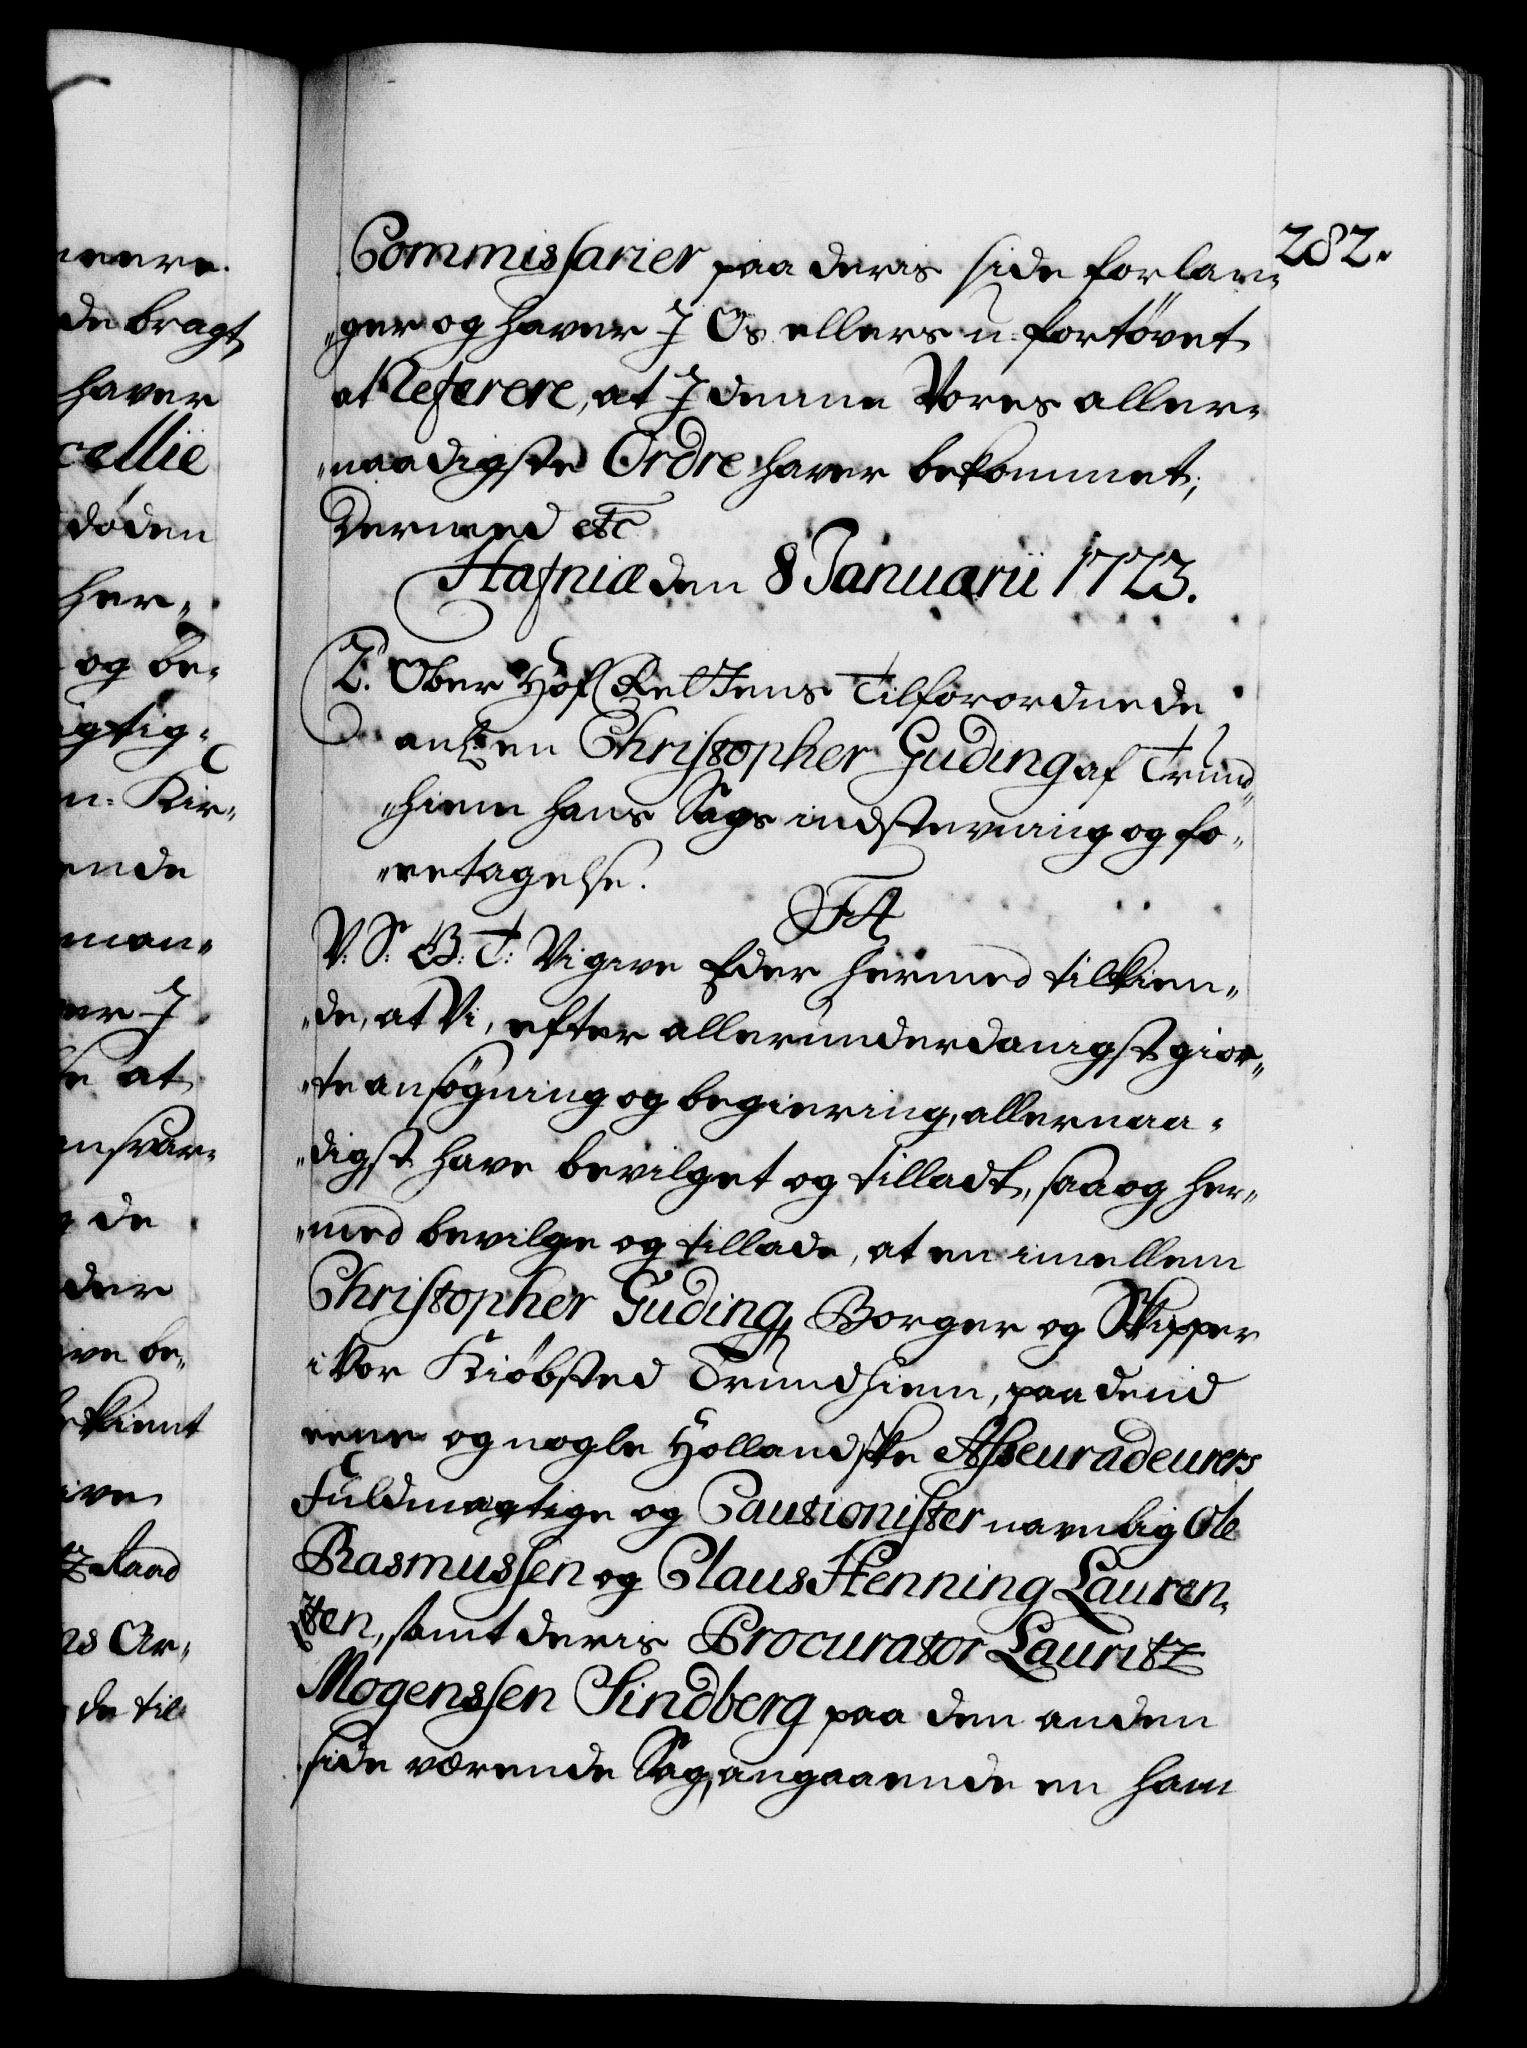 282.
Commissarier paa deris side forlan„
„ger og haver I Os ellers u-fortøvet
at Referere, at I denne Vores aller„
„naadigste Ordre haver bekommet,
Dermed etc
Hafniæ den 8 Januarii 1723.
T. Ober Hof Rettens Tilforordnede
anl: en Christopher Guding af Trund„
„hiem hans Sags indstevning og fo„
„retagelse.
F4
V: S: G: T: Vi give Eder hermed tilkien„
„de, at Vi, efter allerunderdanigst gior„
„te ansøgning og begiering, allernaa„
„digst have bevilget og tilladt, saa og her„
„med bevilge og tillade, at en imellem
Christopher Guding, Borger og Skipper
i Vor Kiøbsted Trundhiem, paa dend
eene og nogle Hollandske Asseuradeurers
Fuldmægtige og Cautionister navnlig Ole
Rasmussen og Claus Henning Lauren„
tzen, samt deris Procurator Lauritz
Mogenssen Sindberg paa den anden
side værende Sag, angaaende en ham
de bragt,
haver
cellie
døden
her„
og be„
igtig„
n: Kir„
ende
man„
er I
se at
ansvar„
de
der
ive be„
bekient
ive
tz Raad
as Ar„
de til